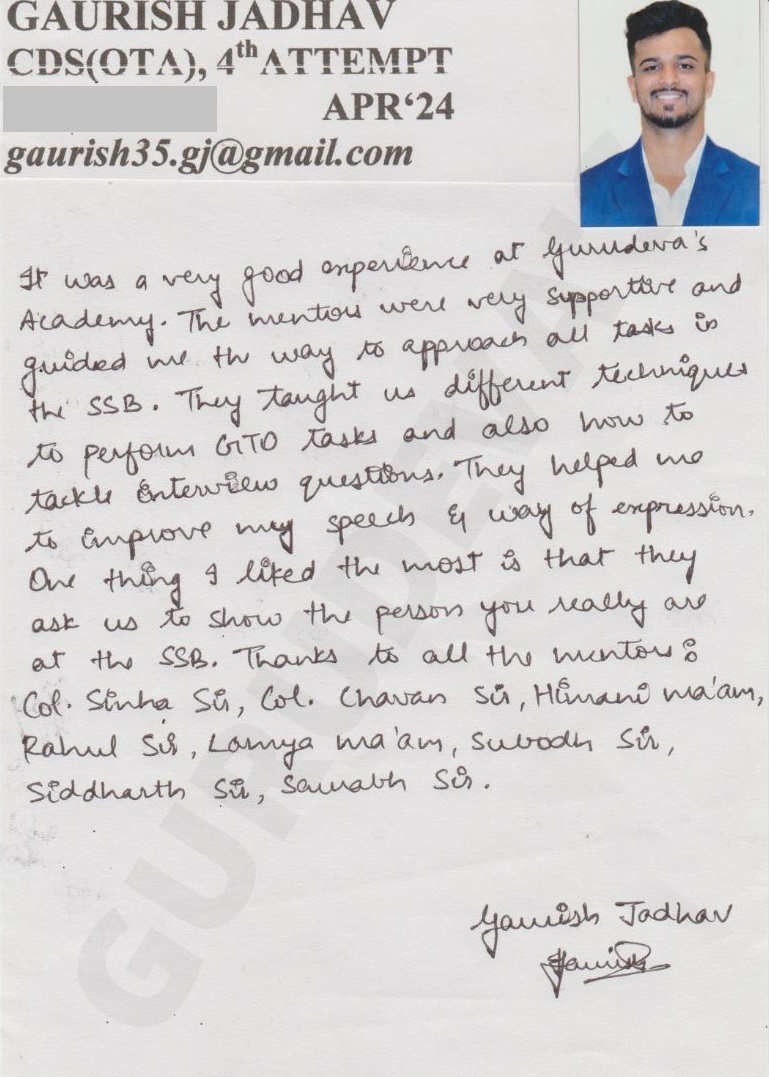 GAURISH JADHAV
CDS(OTA), 4th ATTEMPT
APR‘24
gaurish35.gj@gmail.com
It was a very good experience at Gurudeva's
Academy. The mentors were very supportive and
guided me the way to approach all tasks in
the SSB. They taught us different techniques
to perform GTO tasks and also how to
tackle interview questions. They helped me
to improve my speech & way of expression.
One thing I liked the most is that they
ask us to show the person you really are
at the SSB. Thanks to all the mentors:
Col. Sinha Sir, Col. Chavan Sir, Himani ma'am,
Rahul Sir, Lamya ma'am, Subodh Sir,
Siddharth Sir, Saurabh Sir.
Gaurish Jadhav
Gaurish
GURUDEVA